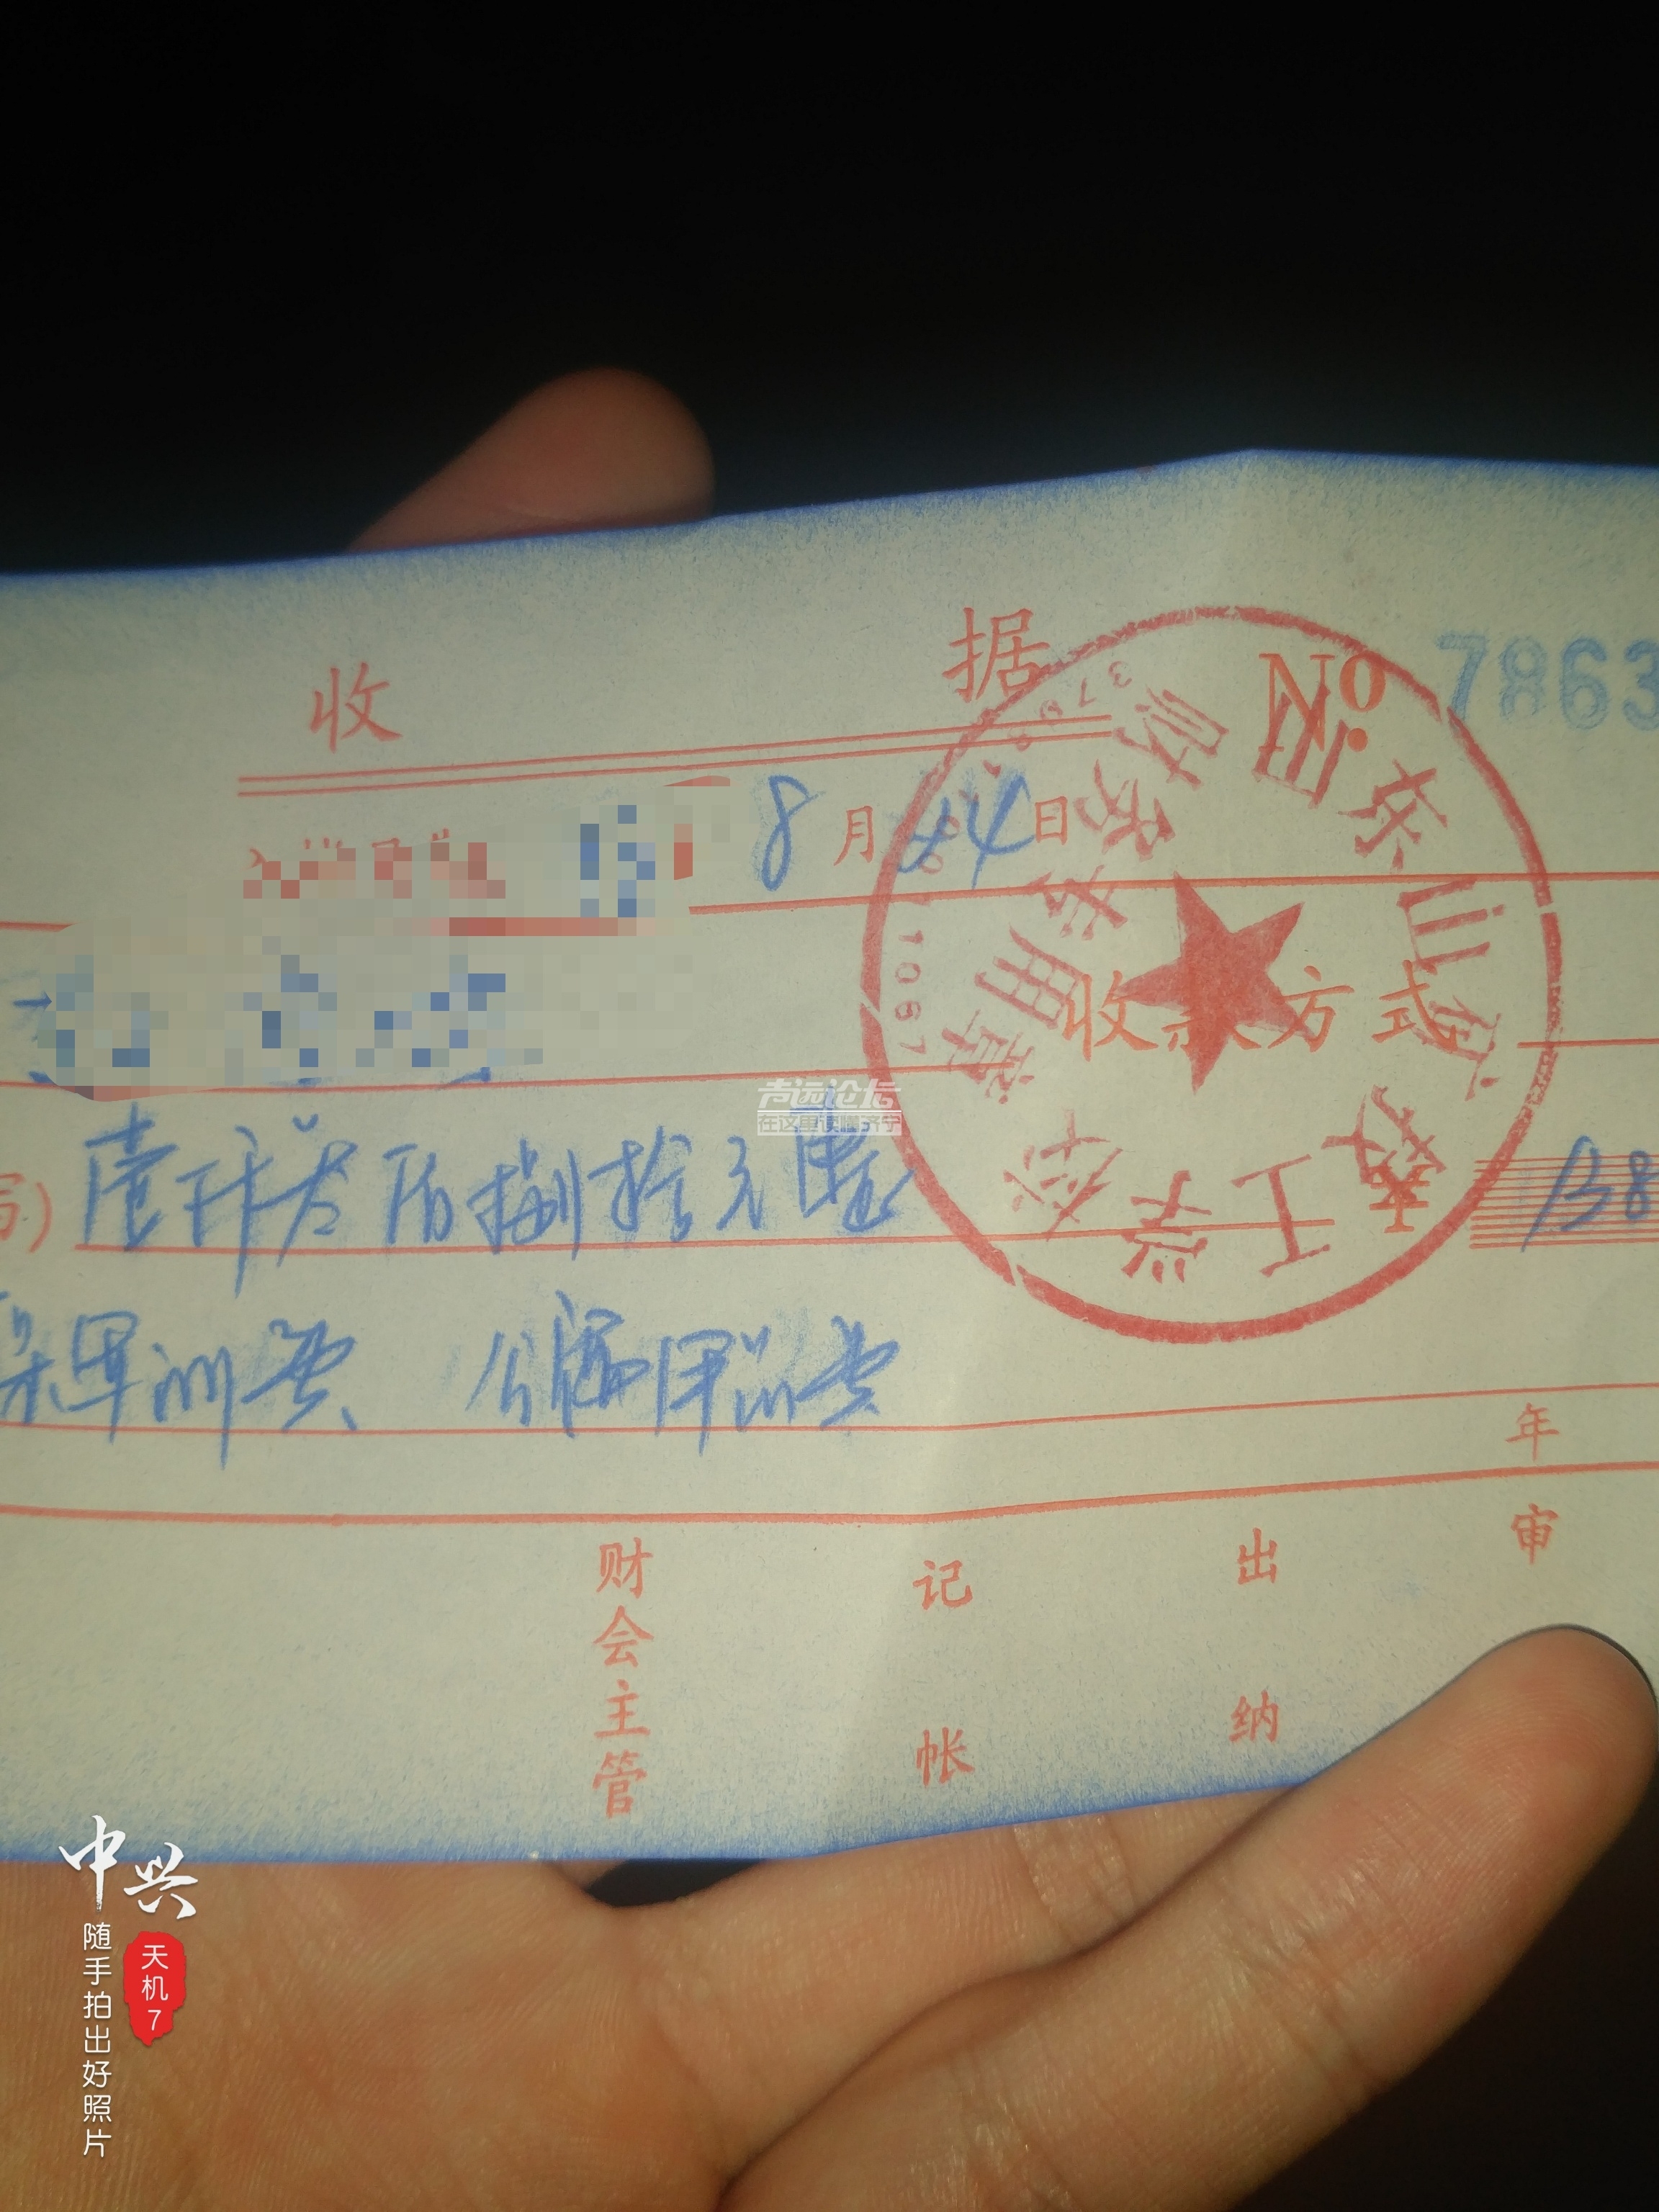 收 据 No 7863
8月24日
收款方式
壹仟叁佰捌拾元整 138
军训费 公寓用品费
年
财会主管 记帐 出纳 审
财务专用章
工学校
1067
声远论坛
在这里读懂济宁
中兴
随手拍出好照片
天机7